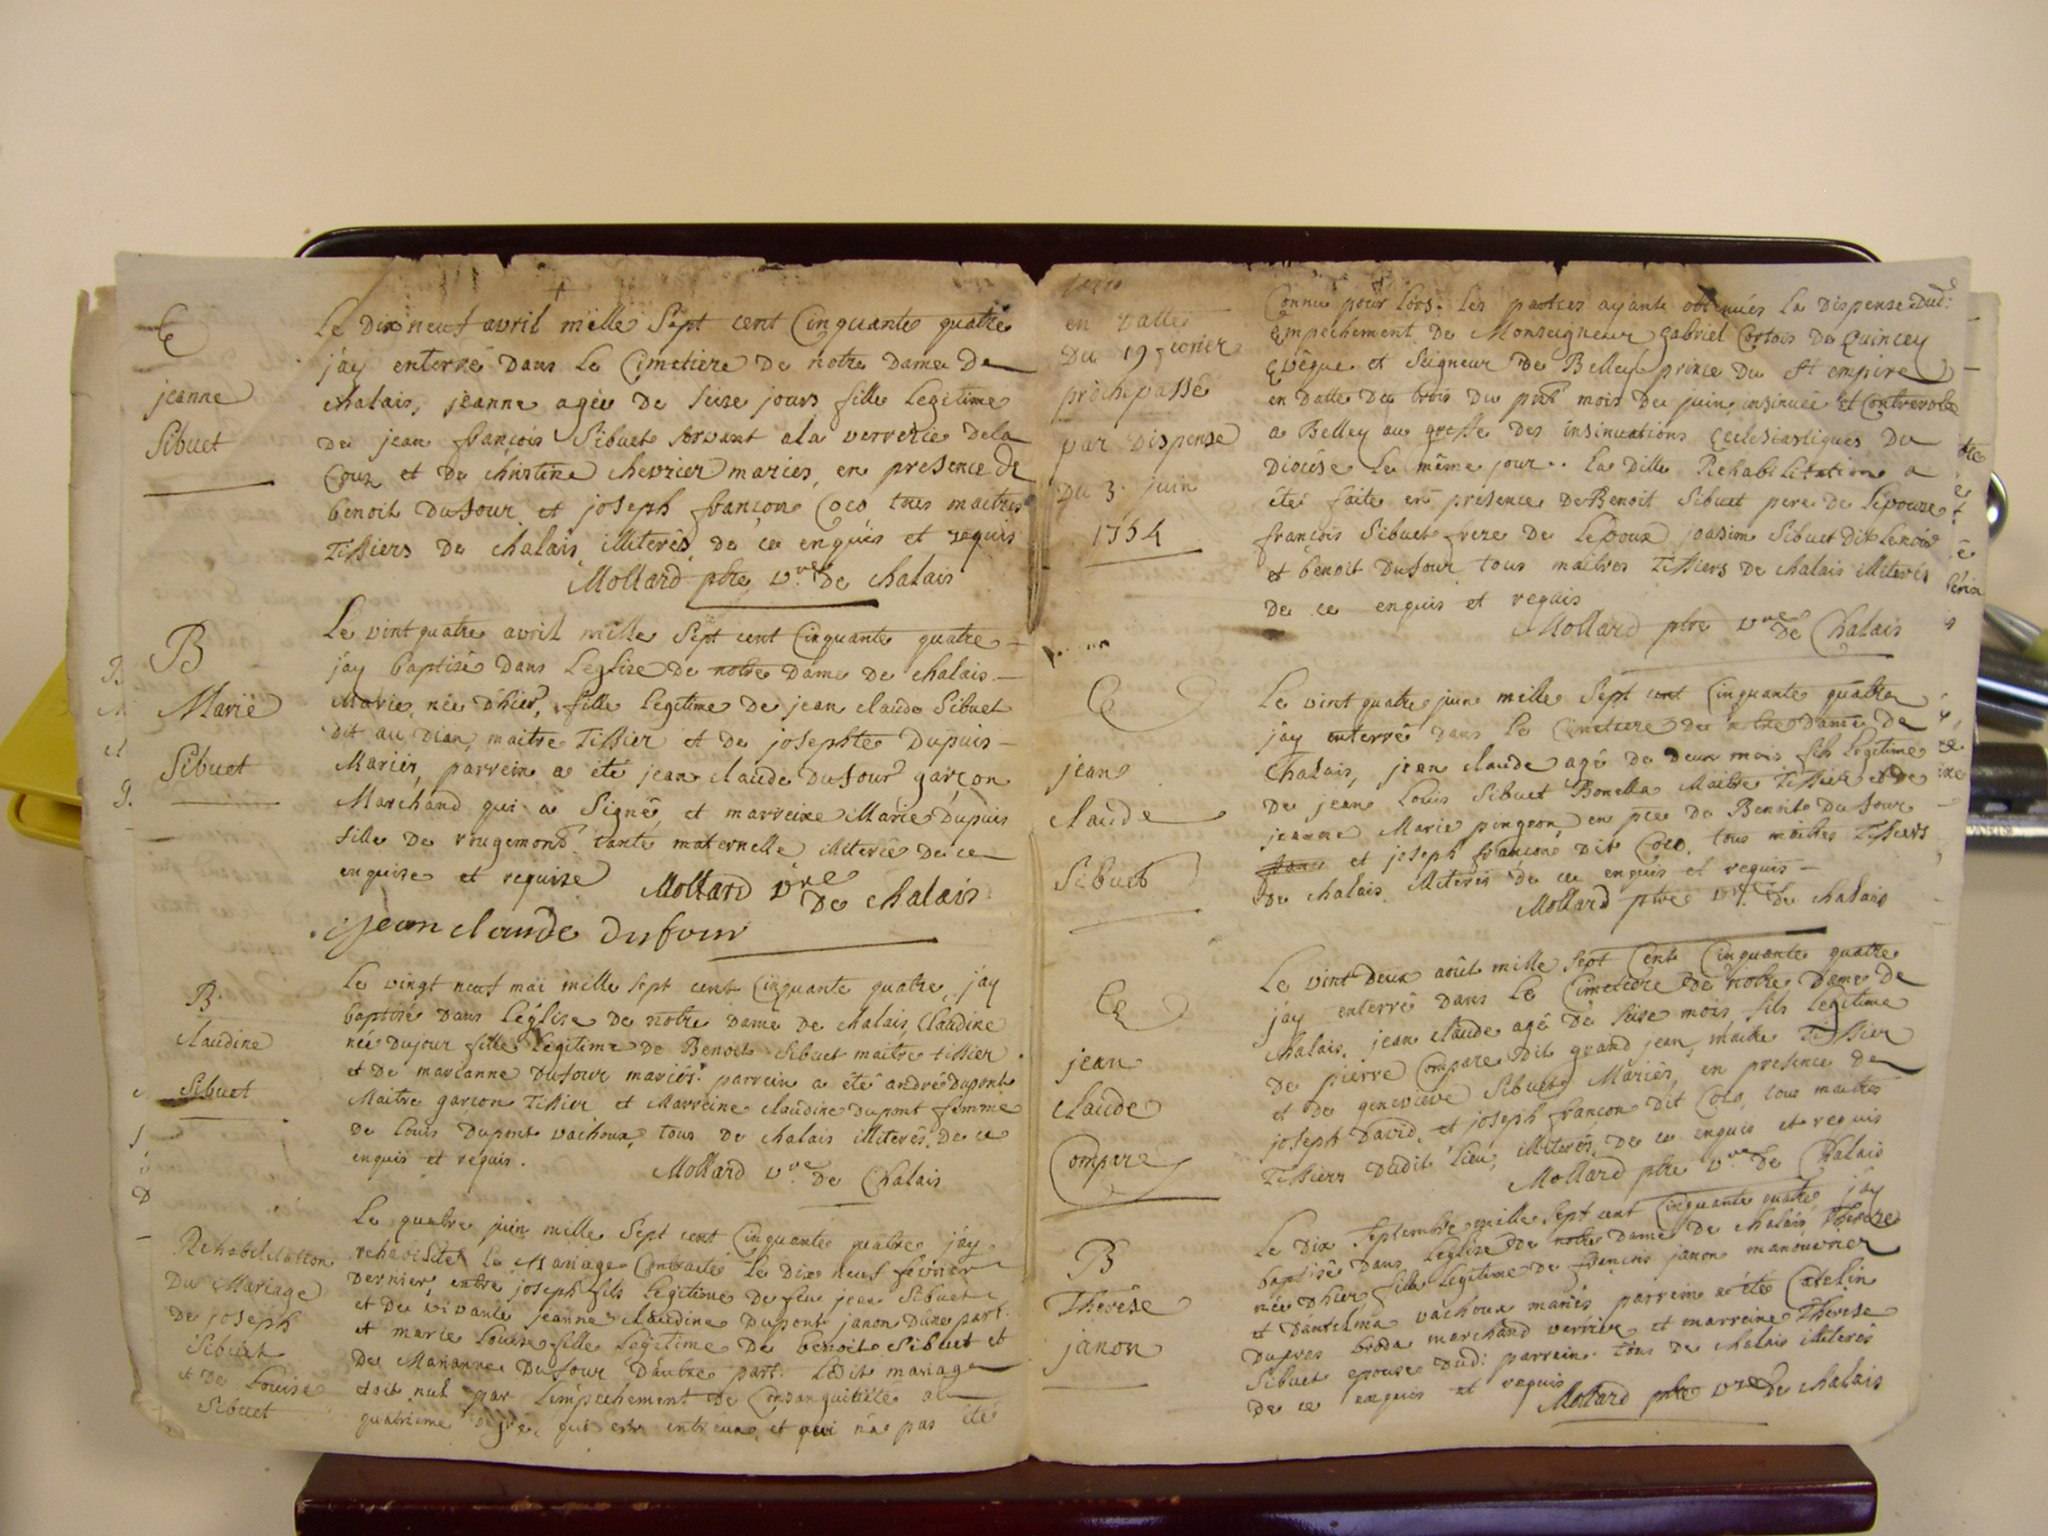 E
jeanne
Sibuet
Le Dix neuf avril mille Sept cent Cinquante quatre
j'ay enterré Dans Le Cimetiere De notre Dame De
chalais, jeanne agée De seize jours fille Legitime
De jean françois Sibuet servant a la verrerie Dela
Coux et De christine chevrier mariés, en presence De
benoit Dufour et joseph françon Coco tous maitres
Tissiers De chalais illiterés De ce enquis et requis
Mollard ptre v.re De chalais
B
Marie
Sibuet
Le vint quatre avril mille Sept cent Cinquante quatre
j'ay baptisé Dans L'eglise De notre Dame De chalais
Marie, née D'hier, fille Legitime De jean claude Sibuet
Dit au Dian, maitre Tissier et De josephte Dupuis
Mariés, parrein a été jean claude Dufour garçon
Marchand qui a Signé, et marreine Marie Dupuis
fille De rougemond tante maternelle illiterée De ce
enquise et requise Mollard v.re De chalais
jean claude dufour
B
claudine
Sibuet
Le vingt neuf mai mille Sept cent Cinquante quatre, j'ay
baptisé Dans L'église De notre Dame De chalais, Claudine
née Dujour fille Legitime De Benoit Sibuet maitre tissier
et De marianne Dufour mariés. parrein a été andré Dupont
Maitre garcon Tissier et Marreine claudine Dupont femme
De Louis Dupont vachoux, tous De chalais illiterés, De ce
enquis et requis.
Mollard v.re De Chalais
Rehabilitation
Du Mariage
De joseph
Sibuet
et De Louise
Sibuet
Le quatre juin mille Sept cent Cinquante quatre j'ay
rehabilité Le Mariage Contracté Le Dix neuf fevrier
Dernier, entre joseph fils Legitime De feu jean Sibuet
et De vivante jeanne claudine Dupont janon D'une part.
et marie Louise fille Legitime De benoit Sibuet et
De Marianne Dufour D'autre part. Ledit mariage
etoit nul par L'empechement De Consanguinité au
quatrieme degré, qui est entr'eux, et qui n'a pas été
en Datte
Du 19 fevrier
proch. passé
par Dispense
Du 3. juin
1754
Connu pour Lors. Les parties ayante obtenües La Dispense Dud:
Empechement De Monseigneur gabriel Cortois De Quincey
Evêque et Seigneur De Belley prince Du St empire
en Datte Du trois Du pnt mois De juin, insinuée et Controrolée
a Belley au greffe Des insinuations Ecclesiastiques Du
Diocése Le même jour. La Ditte Rehabilitation a
été faite en presence De Benoit Sibuet pere De L'épouse
françois Sibuet frere De L'epoux, joachim Sibuet Dit Lenoir
et benoit Dufour tous maitres Tissiers De chalais illiterés
De ce enquis et requis
Mollard ptre v.re De Chalais
E
jean
claude
Sibuet
Le vint quatre juin mille Sept cent Cinquante quatre
j'ay enterré Dans Le Cimetiere De notre Dame De
Chalais, jean claude agé De Deux mois fils Legitime
De jean Louis Sibuet Bonella Maitre Tissier et De
jeanne Marie pingeon, en pce De Benoit Dufour
et joseph françon Dit Coco, tous maitres Tissiers
De chalais illiterés De ce enquis et requis
Mollard ptre v.re De chalais
E
jean
claude
Compare
Le vint Deux août mille Sept Cent Cinquante quatre
j'ay enterré Dans Le Cimetiere De notre Dame De
chalais, jean claude agé De Seise mois, fils Legitime
De pierre Compare Dit grand jean, maitre Tissier
et De geneviève Sibuet Mariés, en presence De
joseph David, et joseph françon Dit Coco, tous maitres
Tissiers Dudit Lieu, illiterés, De ce enquis et requis
Mollard ptre v.re De Chalais
B
Therése
janon
Le Dix Septembre mille Sept cent Cinquante quatre, j'ay
baptisé Dans L'eglise De notre Dame De chalais Therese
née D'hier fille Legitime De françois janon manouvrier
et D'antelma vachoux mariés parrein a été Catelin
Dupras broda marchand verrier et marreine Therese
Sibuet epouse Dud: parrein. tous De chalais illiterés
De ce enquis et requis
Mollard ptre v.re De chalais